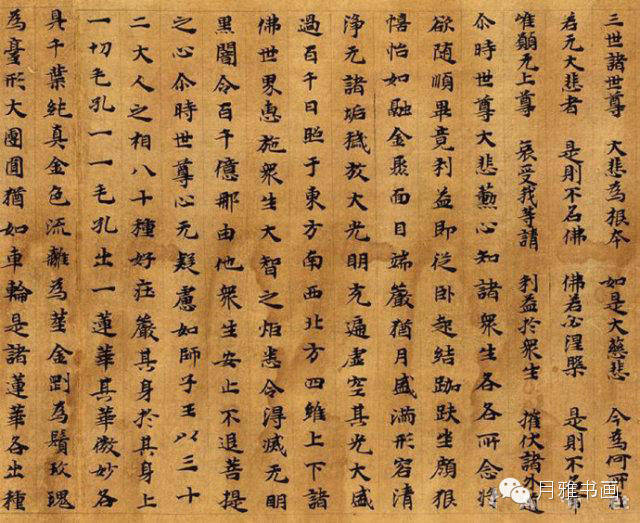 三世諸世尊 大悲為根本 如是大慈悲 今為何所
若无大悲者 是則不名佛 佛若必涅槃 是則不平
唯願无上尊 哀受我等請 利益於衆生 摧伏諸外道
尒時世尊大悲熏心知諸衆生各各所念将
欲随順畢竟利益即從卧起結跏趺坐顔貌
憘怡如融金聚面目端嚴猶月盛滿形容清
淨无諸垢穢放大光明充遍虛空其光大盛
過百千日照于東方南西北方四維上下諸
佛世界惠施衆生大智之炬悉令得滅无明
黑闇令百千億那由他衆生安止不退菩提
之心尒時世尊心无疑慮如師子王以三十
二大人之相八十種好莊嚴其身於其身上
一切毛孔一一毛孔出一蓮華其華微妙各
具千葉純真金色流離為莖金剛為鬚玫瑰
為臺形大團圓猶如車輪是諸蓮華各出種
月雅书画